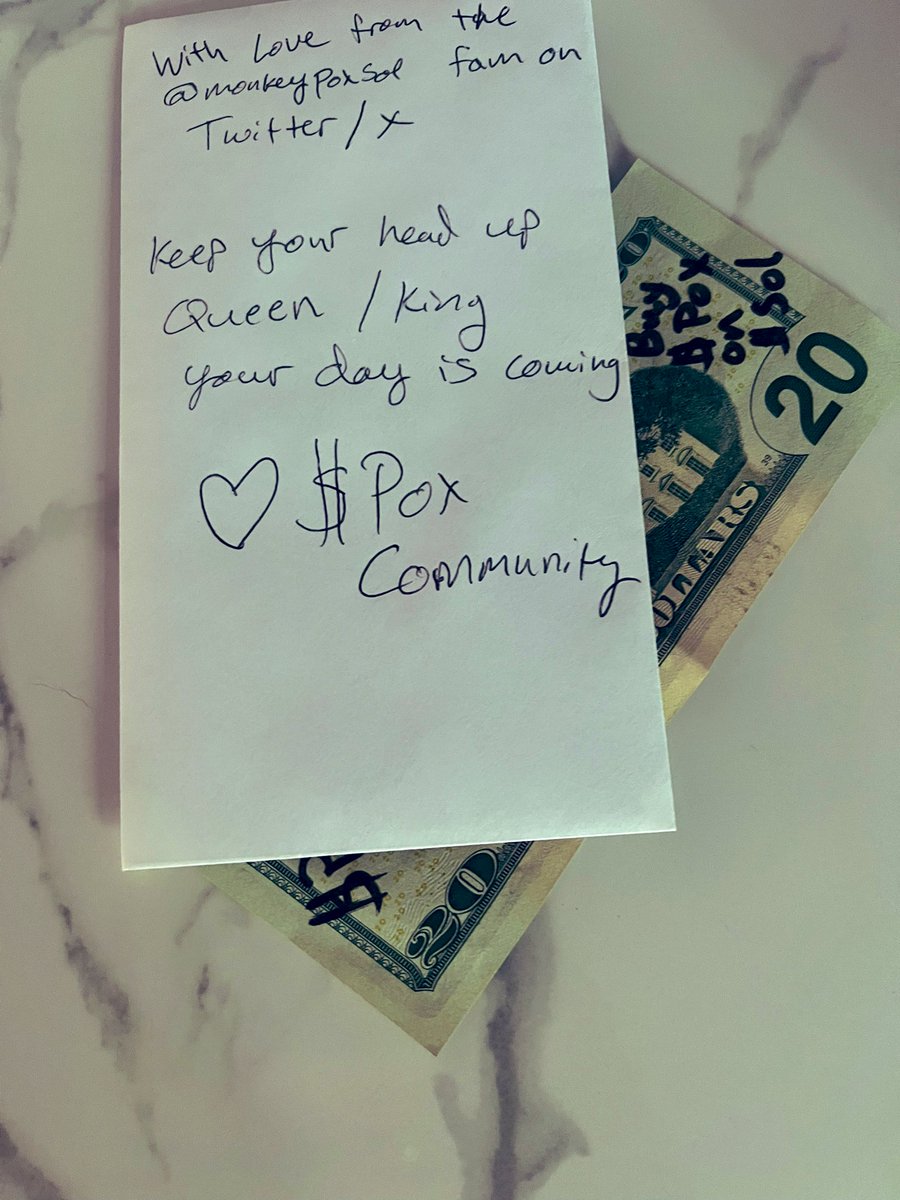 With Love from the
@monkeypoxsol fam on
Twitter/x
Keep your head up
Queen /King
your day is coming
♡ $Pox
Community
Buy
$Pox
on
$Sol
20
DOLLARS
20